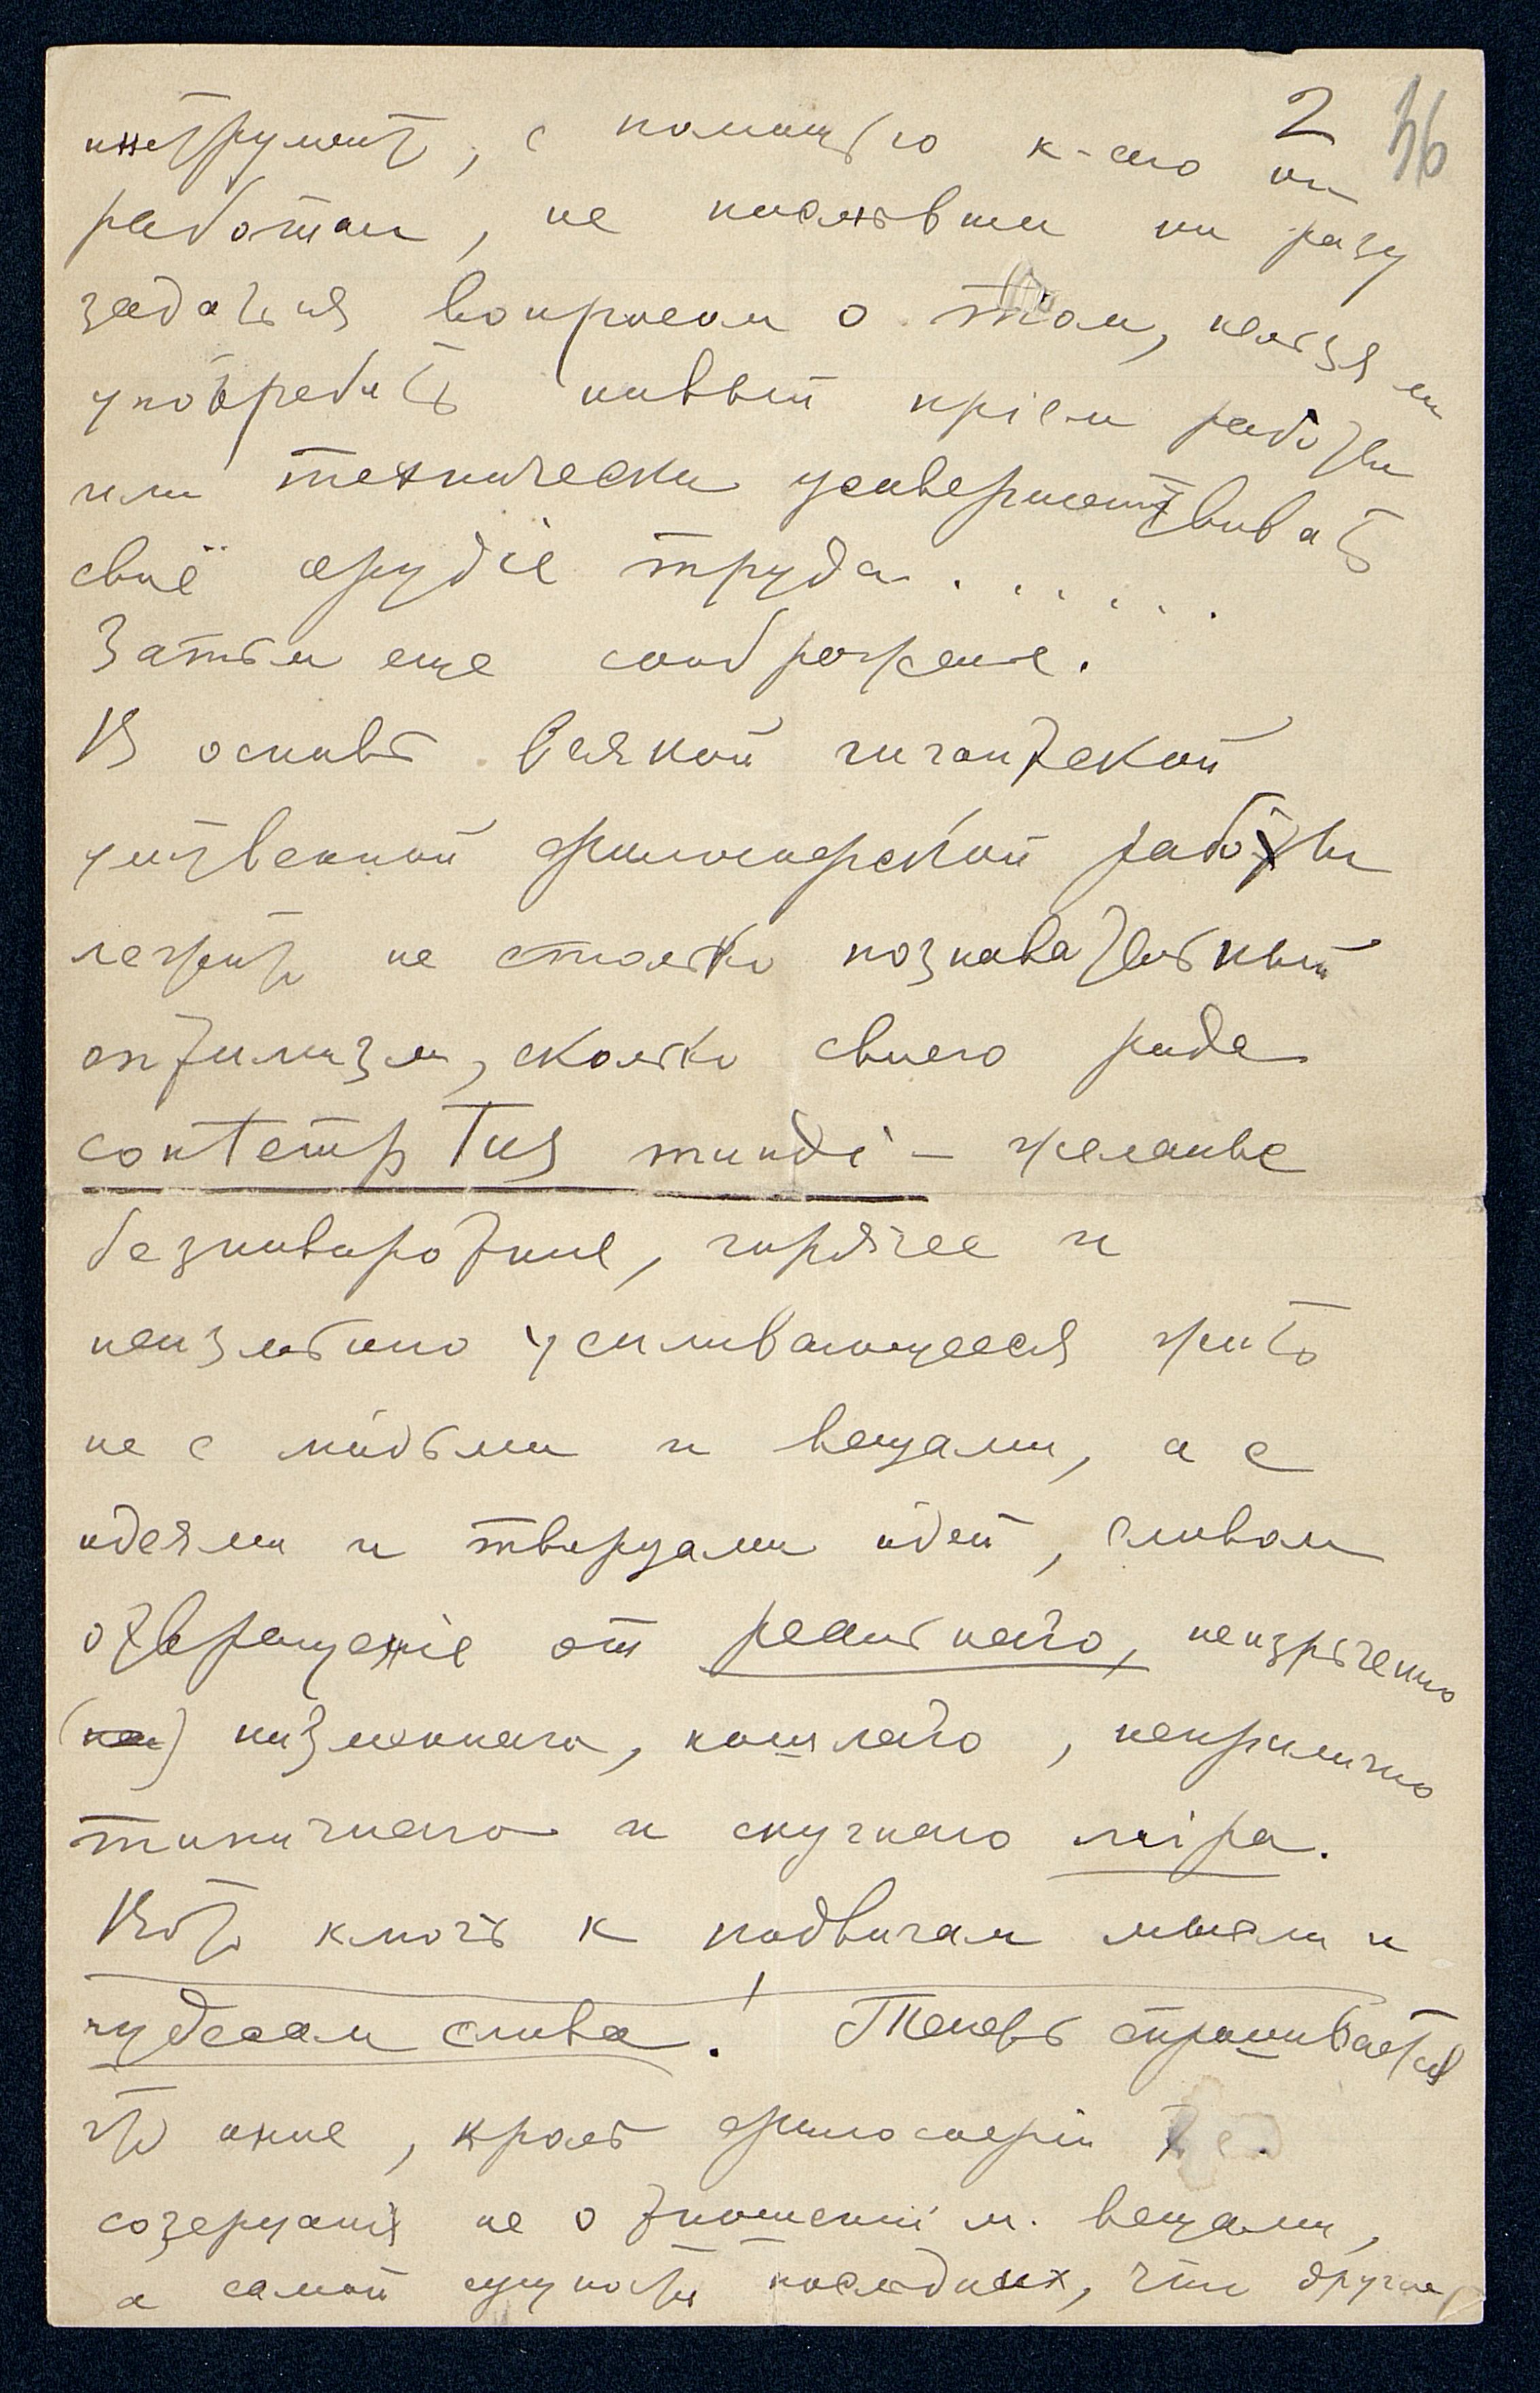 2 36
инструмент, с помощью к-аго он
работал, не посмѣвши ни разу
задаться вопросом о том, нельзя ли
употребить новый пріем работы
или технически усовершенствовать
своё орудіе труда. . . . . . .
Затѣм еще соображение.
В основѣ всякой гигантской
умственной философской работы
лежит не столько познавательный
оптимизм, сколько своего рода
contemptus mundi — желанье
безповоротное, горячее и
неизмѣнно усиливающееся жить
не с людьми и вещами, а с
идеями и творцами идей, словом
отвращеніе от реальнаго, неизрѣченно
низменнаго, пошлаго, неприлично
типичнаго и скучнаго міра.
Вот ключъ к подвигам мысли и
чудесам слова! Теперь спрашивается
что иное, кромѣ философіи
созерцанія не отношеній м. вещами,
а самой сущности послѣдних, что другое,